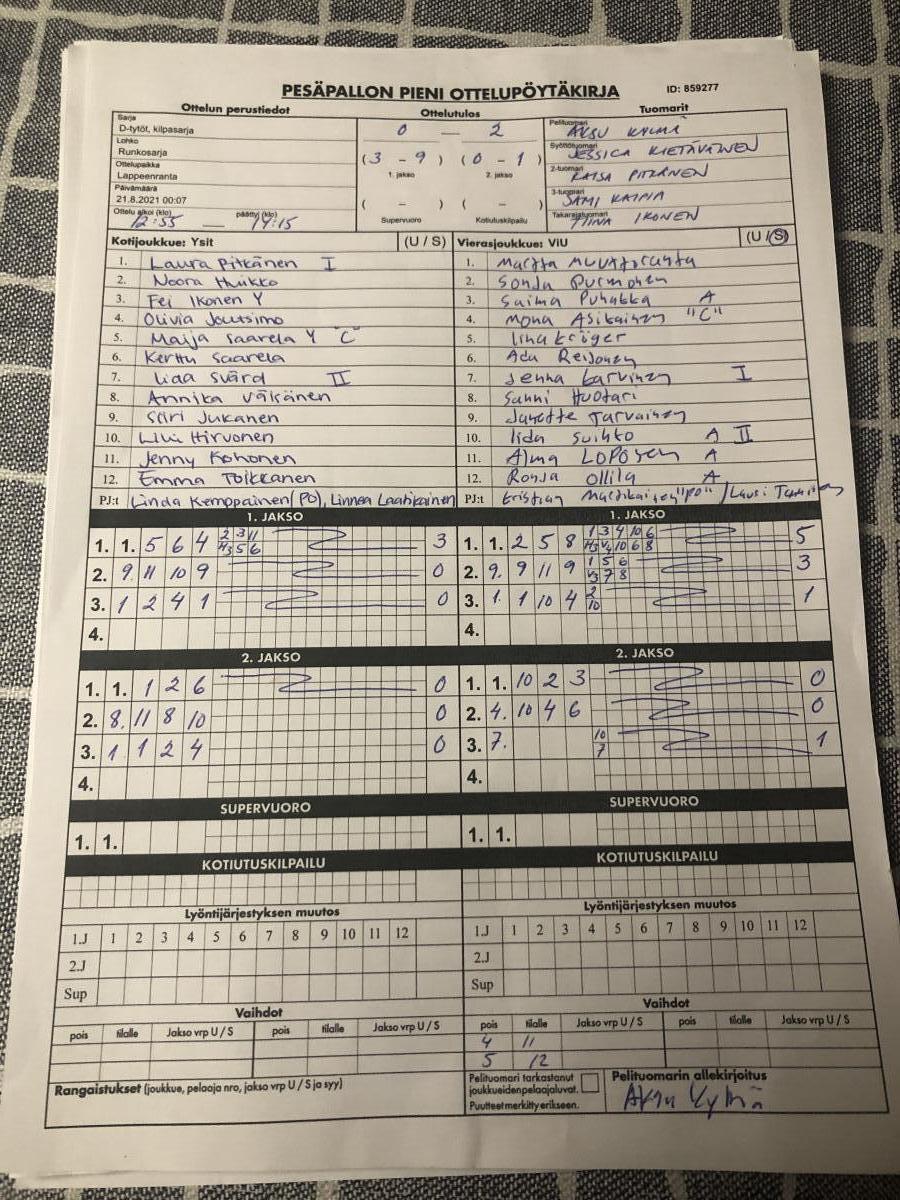 PESÄPALLON PIENI OTTELUPÖYTÄKIRJA ID: 859277
Ottelun perustiedot Ottelutulos Tuomarit
Sarja
D-tytöt, kilpasarja
Lohko
Runkosarja
Ottelupaikka
Lappeenranta
Päivämäärä
21.8.2021 00:07
Ottelu alkoi (klo) päättyi (klo)
12:55 — 14:15
0 — 2
(3 - 9) (0 - 1)
1. jakso 2. jakso
( - ) ( - )
Supervuoro Kotiutuskilpailu
Pelituomari
AKSU KYLMÄ
Syöttötuomari
JESSICA KIETÄVÄINEN
2-tuomari
KAISA PITKÄNEN
3-tuomari
SAMI KAIPIA
Takarajatuomari
TIINA IKONEN
Kotijoukkue: Ysit (U / S) Vierasjoukkue: ViU (U / S)
1. Laura Pitkänen I 1. Martta Muuttoranta
2. Noora Huikko 2. Sonja Purmonen
3. Fei Ikonen Y 3. Saima Puhakka A
4. Olivia Joutsimo 4. Mona Asikainen "C"
5. Maija Saarela Y "C" 5. Iina Kröger
6. Kerttu Saarela 6. Ada Reijonen
7. Iida Svärd II 7. Jenna Karvinen I
8. Annika Väisänen 8. Sanni Huotari
9. Siiri Jukanen 9. Janette Tarvainen
10. Livi Hirvonen 10. Iida Suihko A II
11. Jenny Kohonen 11. Alma Lopösen A
12. Emma Toikkanen 12. Ronja Ollila A
PJ:t Linda Kemppainen (PO), Linnea Laatikainen PJ:t Kristian Martikainen "PO" / Lauri
1. JAKSO 1. JAKSO
1. 1. 5 6 4 2 3 11 3 1. 1. 2 5 8 1 3 4 10 6 5
H3 5 6 H3 V4 10 6 8
2. 9. 11 10 9 0 2. 9. 9 11 9 1 5 6 3
V3 7 8
3. 1 2 4 1 0 3. 1. 1 10 4 2 1
10
4. 4.
2. JAKSO 2. JAKSO
1. 1. 1 2 6 0 1. 1. 10 2 3 0
2. 8. 11 8 10 0 2. 4. 10 4 6 0
3. 1 1 2 4 0 3. 7. 10 1
7
4. 4.
SUPERVUORO SUPERVUORO
1. 1. 1. 1.
KOTIUTUSKILPAILU KOTIUTUSKILPAILU
Lyöntijärjestyksen muutos Lyöntijärjestyksen muutos
1.J 1 2 3 4 5 6 7 8 9 10 11 12 1.J 1 2 3 4 5 6 7 8 9 10 11 12
2.J 2.J
Sup Sup
Vaihdot Vaihdot
pois tilalle Jakso vrp U / S pois tilalle Jakso vrp U / S pois tilalle Jakso vrp U / S pois tilalle Jakso vrp U / S
4 11
5 12
Rangaistukset (joukkue, pelaaja nro, jakso vrp U / S ja syy)
Pelituomari tarkastanut
joukkueidenpelaajaluvat.
Puutteet merkitty erikseen.
Pelituomarin allekirjoitus
Aksu Kylmä